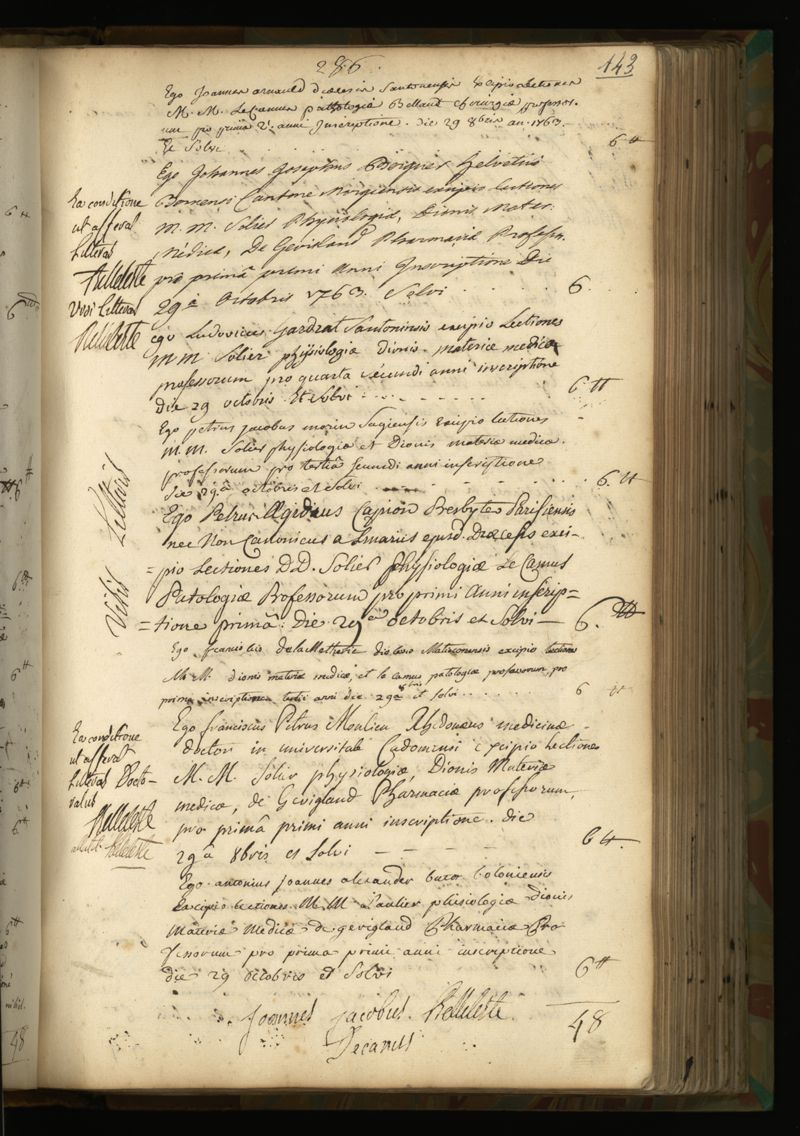 286.
143
Ego Joannes arnauld diœcesis Santonensis Excipio lectiones
M. M. Le Camus pathologiæ Bellaut chirurgiæ professor.
um pro primâ 2i anni Inscriptione. die 29 8bris an. 1763.
Et Solvi 6 tt
Ego Johannes Josephus Helvetius
Cantone excipio lectiones
m. m. Solier Physiologiæ, Dionis Mater.
Médicæ, De Gevigland Pharmaciæ Professr.
pro primâ primi Anni Inscriptione Die
29â Octobris 1763. Solvi 6.
Ea conditione
ut afferat
Litteras
Belleteste
Vidi Litteras
Belleteste
ego Ludovicus Gardrat Santonensis excipio Lectiones
m m Solier physiologiæ dionis materiæ medicæ
professorum pro quarta secundi anni inscriptione
die 29 octobris Et solvi 6 tt
Ego petrus jacobus morin Sagiensis excipio lectiones
m. m. Solier physiologiæ et Dionis materiæ medicæ.
professorum pro tertiâ secundi anni inscriptione
die 29â octobris et solvi 6. tt
Vidi Litteras
Ego Petrus Ægidius Capron Presbyter Parisiensis
nec Non Canonicus a ejusd. Diæcesis exci-
=pio Lectiones D.D. Solier Physiologiæ Le Camus
Patologiæ Professorum pro primi Anni inscrip=
=tione primâ. Die 29â octobris et Solvi — 6. tt
Ego franciscus delaMetherie Matisconensis excipio lectiones
M. M. dionis materiæ medicæ, et le camus patologiæ professorum, pro
prima inscriptione tertii anni die 29â 8bris et solvi 6 tt
Ego franciscus Petrus Moulieu Rhedonæus medicinæ
doctori in universitate Cadomensi Excipio Lectiones
M. M. Solier physiologiæ, Dionis Materiæ
medicæ, de Gevigland Pharmaciæ professorum,
pro primâ primi anni inscriptione. die
29â 8bris et Solvi — — — — 6 tt.
Ea conditione
ut afferat
Litteras Docto-
ratus
Belleteste
attulit Belleteste
Ego antonius joannes alexander buco Coloniensis
Excipio lectiones M. M. phisiologiæ Dionis
Materiæ Medicæ de gevigland Pharmaciæ Pro
fessorum pro prima primi anni inscriptione
die 29 octobris et Solvi 6 tt
48
Joannes Jacobus Belleteste
Decanus